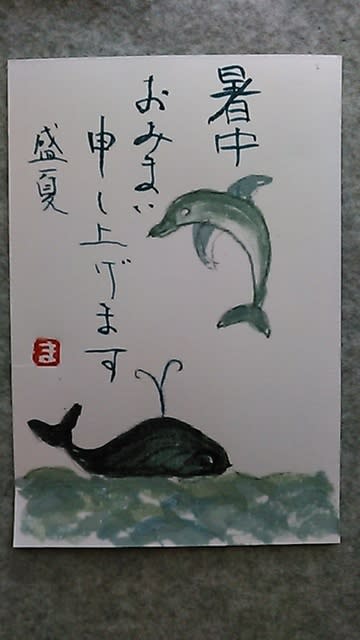 暑中
おみまい
申し上げます
盛夏
ま